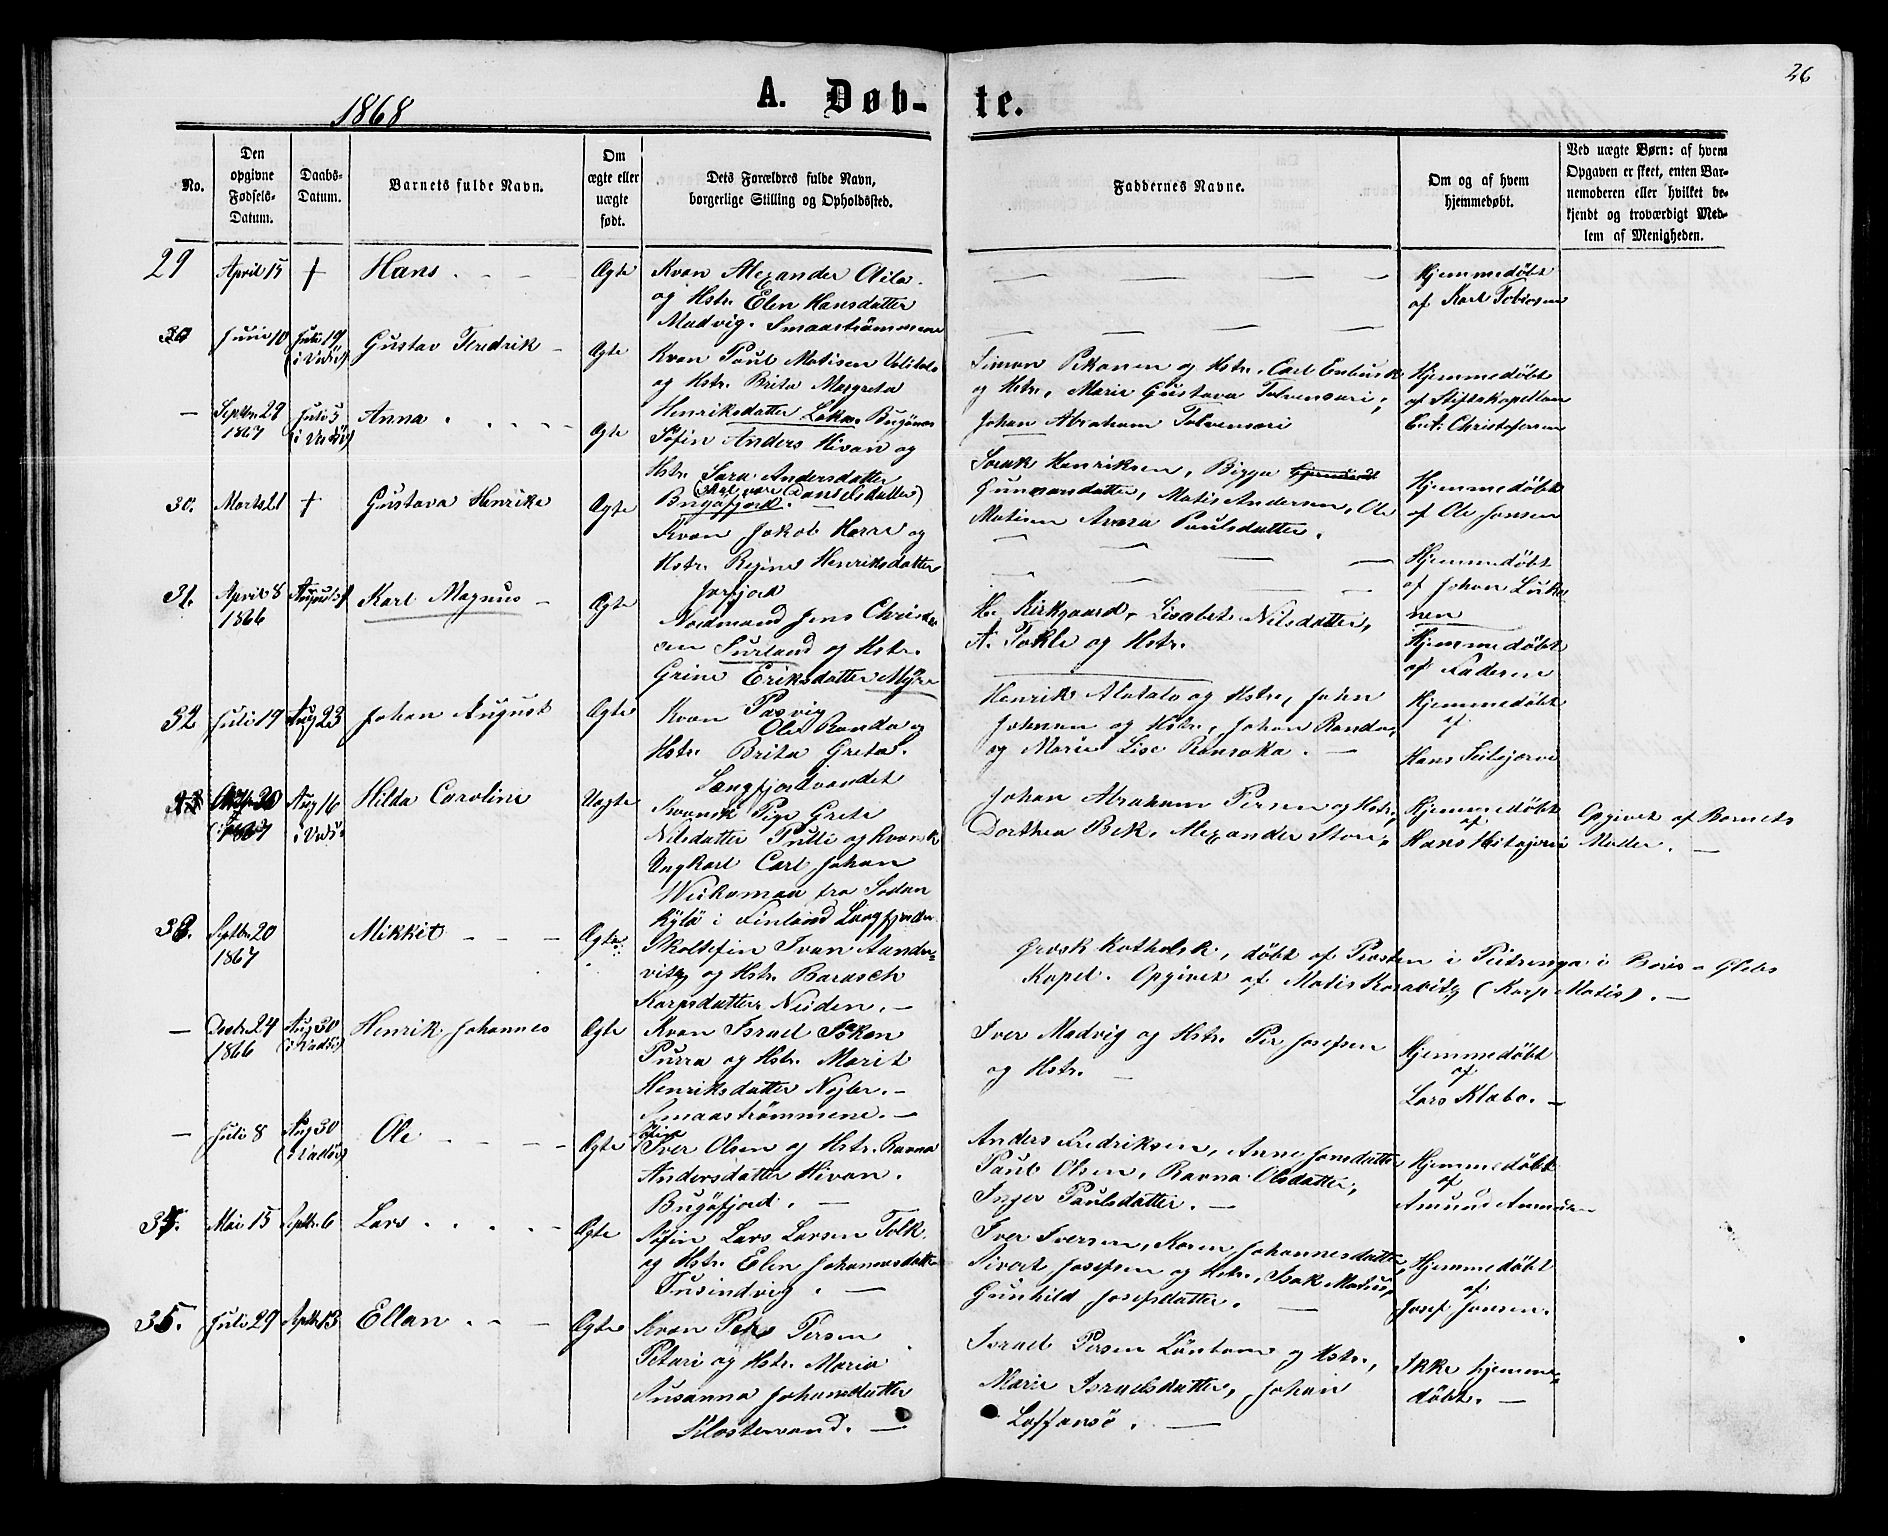 26
1868
A. Døb-te.
No.
Den opgivne Fødsels-Datum.
Daabs-Datum.
Barnets fulde Navn.
Om ægte eller uægte født.
Dets Forældres fulde Navn, borgerlige Stilling og Opholdssted.
Faddernes Navne.
Om og af hvem hjemmedøbt.
Ved uægte Børn: af hvem Opgaven er skeet, enten Barnemoderen eller hvilket bekjendt og troværdigt Medlem af Menigheden.
29 April 15 + Hans Ægte
Kvan Alexander Aila
og Hstr. Elen Hansdatter
Madvig. Smaastrømmene
Hjemmedøbt
af Karl Tobiesen
30 Juni 10 Juli 19 (i Vadsø) Gustav Fredrik Ægte
Kvan Paul Matisen
og Hstr. Brita Margreta
Henriksdatter Bugønes
Simon Pekanen og Hstr. Carl
og Hstr. Marie Gustava Tolvensari;
Johan Abraham Tolvensari
Hjemmedøbt
af Stiftskapellan
Christophersen
— Septbr 29 1867 Juli 5 (i Vadsø) Anna Ægte
Søfin Anders Hivan og
Hstr. Sara Andersdatter
(skal være Danielsdatter)
Bugøfjord.
Isak Henriksen, Bigga
Gunnarsdatter, Matis Andersen, Ole
Matisen Anna Paulsdatter.
Hjemmedøbt
af Ole Jonsen
30. Marts 21 + Gustava Henrike Ægte
Kvan Jakob Harri og
Hstr. Regine Henriksdatter
Jarfjord
Hjemmedøbt
af Johan
nen
31. April 8 1866 August Karl Magnus Ægte
Nordmand Jens Christen
sen og Hstr.
Grine Eriksdatter Myre
Pasvig
H. Kirkgaard, Lisabet Nilsdatter,
A. Tokle og Hstr.
Hjemmedøbt
af Faderen
32 Juli 19 Aug 23 Johan August Ægte
Kvan Ole Randa og
Hstr. Brita Greta.
Langfjordvandet
Henrik Alatalo og Hstr, John
Johnsen og Hstr, Johan Randa,
og Marie Lise Ransoka.
Hjemmedøbt
af
Hans
20 1867 Aug 16 i Vadsø Hilda Caroline Uægte
Svensk Pige Grete
Nilsdatter Pulli og kvænsk
Ungkarl Carl Johan
fra Sodan
kylä i Finland Langfjorden
Johan Abraham Persen og Hstr;
Dorthea Bek. Alexander Stori;
Hjemmedøbt
af
Hans
Opgivet af Barnets
Moder.
33. Septbr. 20 1867 Mikkit Ægte
Skoltefin Ivan Aandre-
vitz og Hstr. Barasch
Karpsdatter Neiden.
Græsk Katholsk, døbt af Presten i Peisenga i Boris-Glebs
Kapel. Opgivet af Matis (Karp Matis).
— 24 1866 Aug 30 (i Vadsø) Henrik Johannes Ægte
Kvan Israel Iskan
Purra og Hstr. Marit
Henriksdatter Nøjler.
Smaastrømmene.
Iver Madvig og Hstr. Per Josefsen
og Hstr.
Hjemmedøbt
af
Lars Klabo.
— Juli 8 Aug 30 (i Vadsø) Ole Ægte
Iver Olsen og Hstr. Ravna
Andersdatter Hivan.
Bugøfjord.
Anders Fredriksen, Anne Jonsdatter
Paul Olsen, Ravna Olsdatter,
Inger Paulsdatter.
Hjemmedøbt
af
Amund Amundsen
34. Mai 15 Septbr. 6 Lars Ægte
Søfin Lars Larsen Tolk
og Hstr. Elen Johannesdatter
Tusindvig.
Iver Iversen, Karen Johannesdatter,
Sivert Josefsen og Hstr., Isak Matius,
Gunhild Josefsdatter.
Hjemmedøbt
af
Josef Jonsen.
35. Juli 29 Septbr. 13 Ellan Ægte
Kvan Petrs Persen
Petari og Hstr. Maria
Susanna Johansdatter
Klostervand.
Israel Persen og Hstr.,
Marie Israelsdatter, Johan
Hjemmedøbt: Ikke hjemme-
døbt.